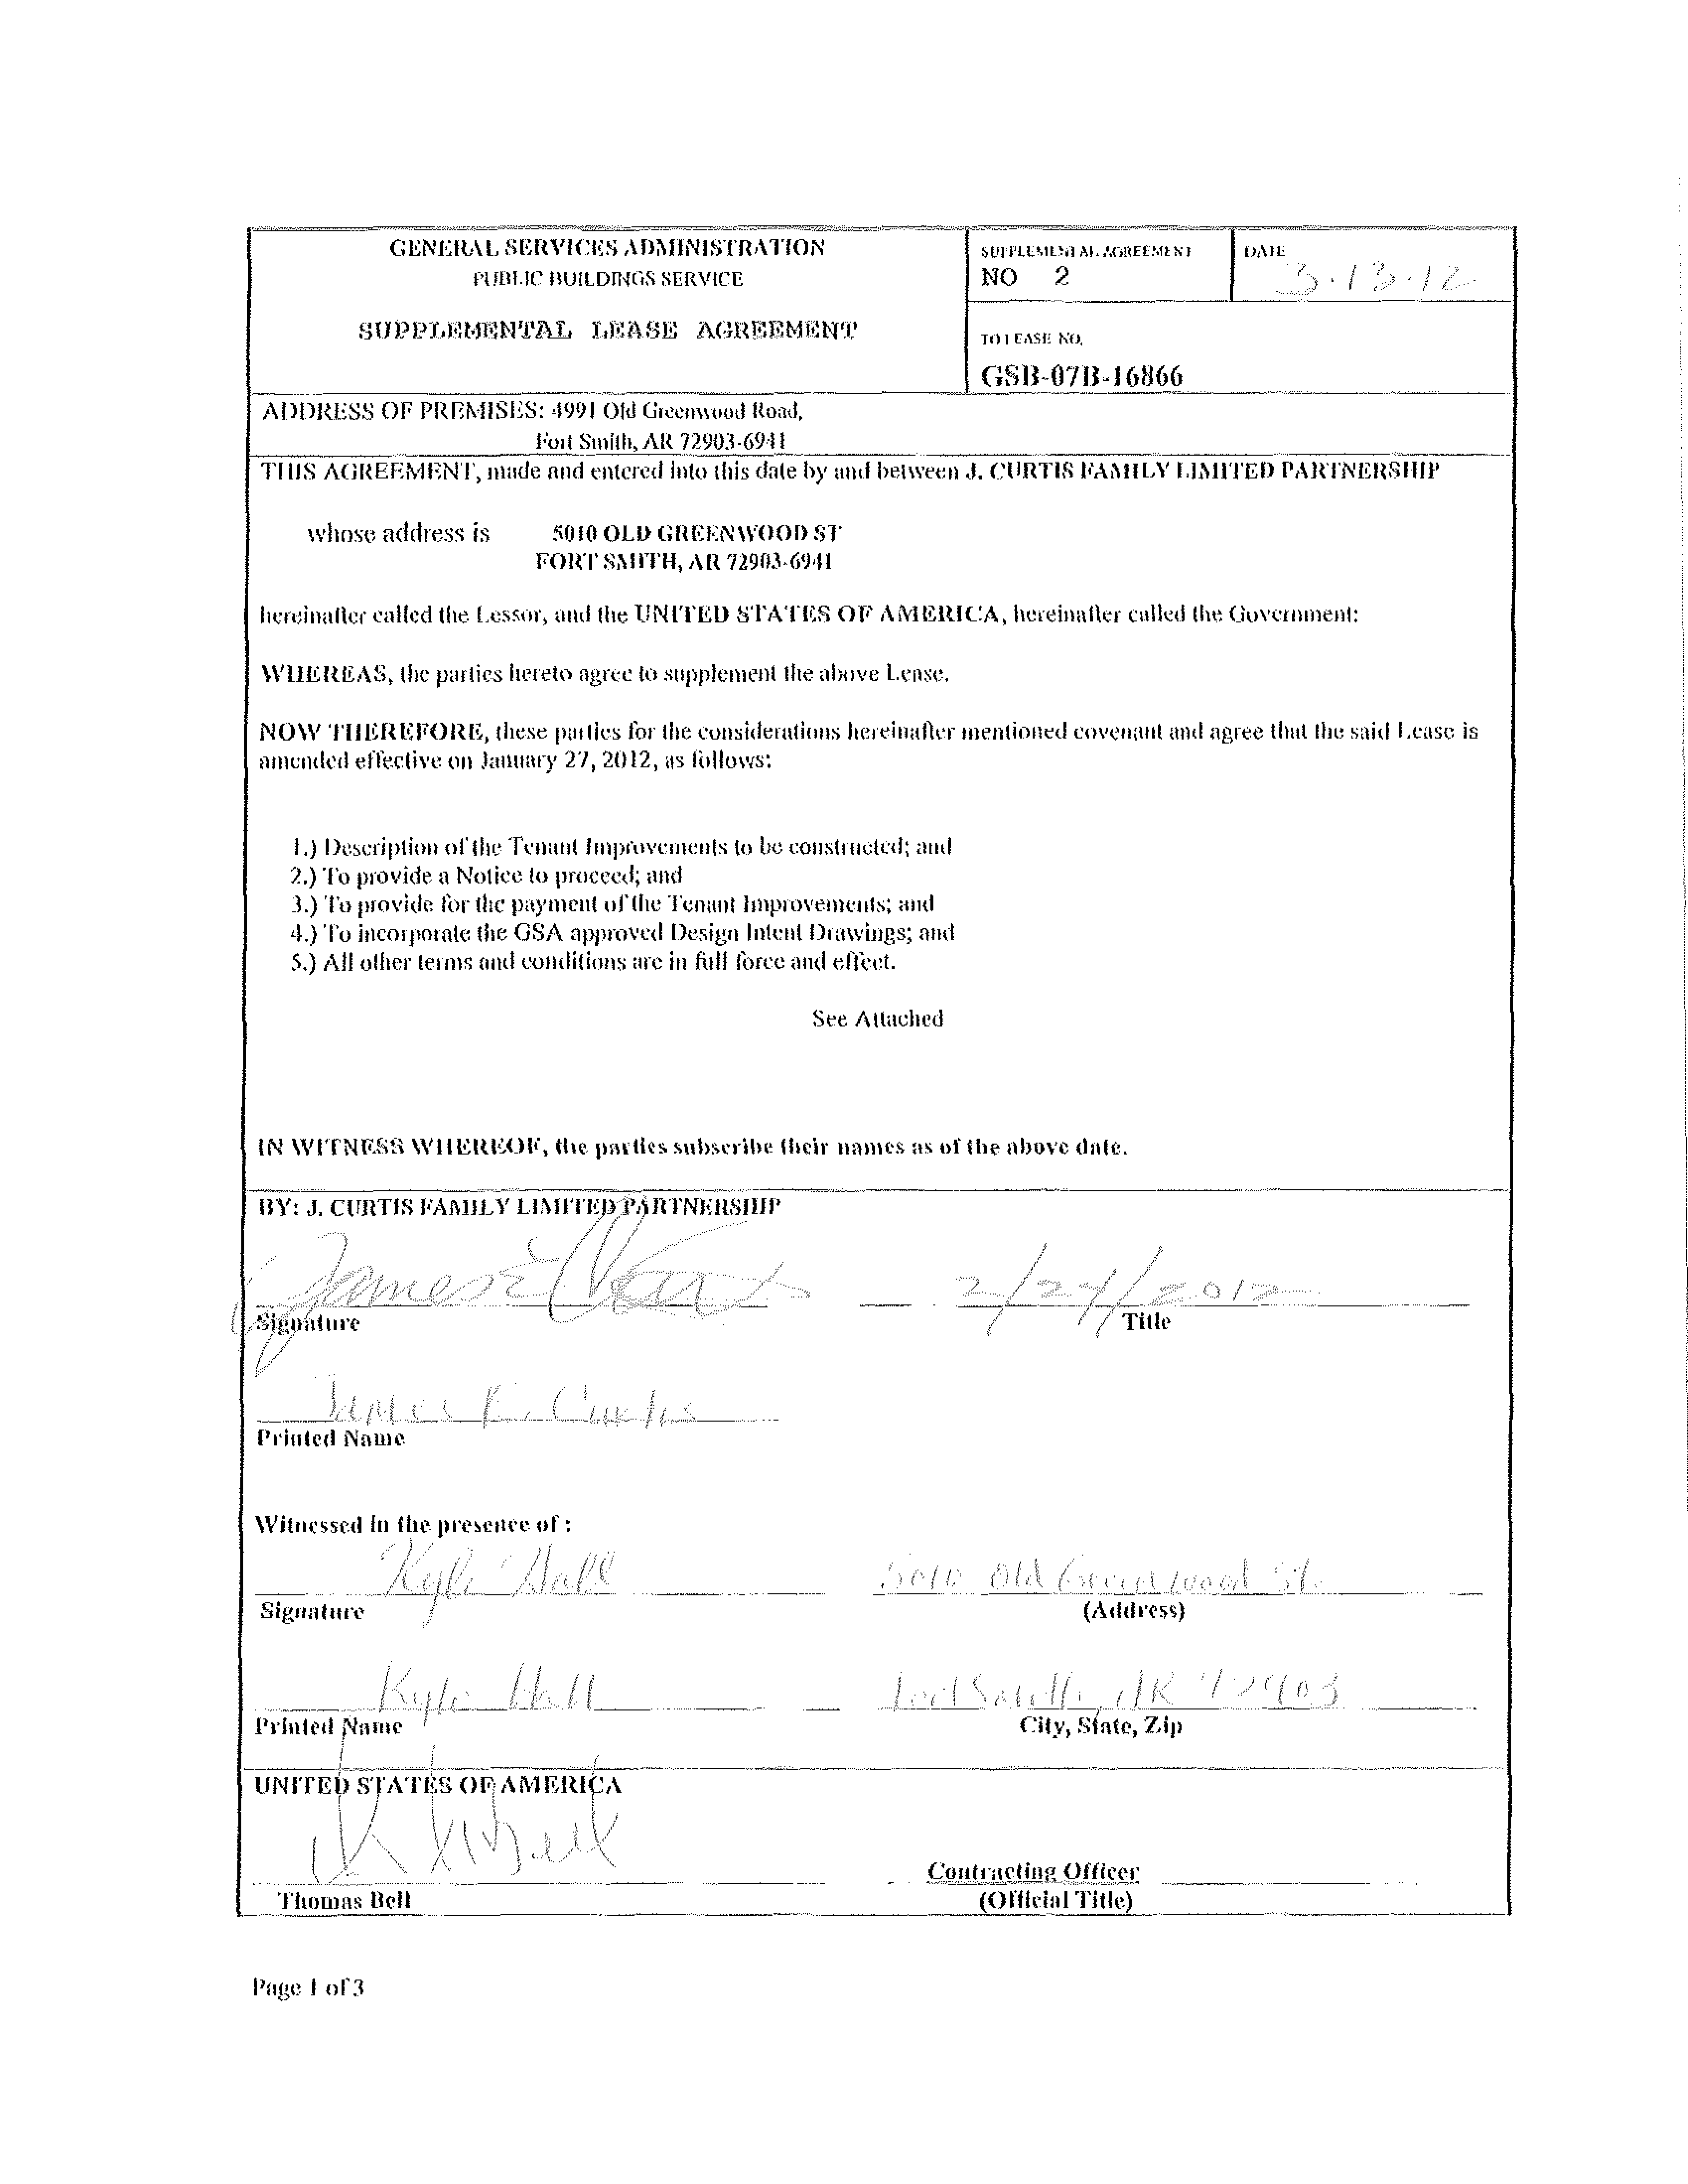 GENERAL SERVICES ADMINISTRATION
PUBLIC BUILDINGS SERVICE
SUPPLEMENTAL LEASE AGREEMENT
SUPPLEMENTAL AGREEMENT
NO 2
DATE
3.13.12
TO LEASE NO.
GSB-07B-16866
ADDRESS OF PREMISES: 4991 Old Greenwood Road,
Fort Smith, AR 72903-6941
THIS AGREEMENT, made and entered into this date by and between J. CURTIS FAMILY LIMITED PARTNERSHIP
whose address is 5010 OLD GREENWOOD ST
FORT SMITH, AR 72903-6941
hereinafter called the Lessor, and the UNITED STATES OF AMERICA, hereinafter called the Government:
WHEREAS, the parties hereto agree to supplement the above Lease.
NOW THEREFORE, these parties for the considerations hereinafter mentioned covenant and agree that the said Lease is
amended effective on January 27, 2012, as follows:
1.) Description of the Tenant Improvements to be constructed; and
2.) To provide a Notice to proceed; and
3.) To provide for the payment of the Tenant Improvements; and
4.) To incorporate the GSA approved Design Intent Drawings; and
5.) All other terms and conditions are in full force and effect.
See Attached
IN WITNESS WHEREOF, the parties subscribe their names as of the above date.
BY: J. CURTIS FAMILY LIMITED PARTNERSHIP
James E Curtis 2/24/2012
Signature Title
James E. Curtis
Printed Name
Witnessed in the presence of :
Kylie Hall 5010 Old Greenwood St.
Signature (Address)
Kylie Hall Fort Smith, AR 72903
Printed Name City, State, Zip
UNITED STATES OF AMERICA
Contracting Officer
Thomas Bell (Official Title)
Page 1 of 3